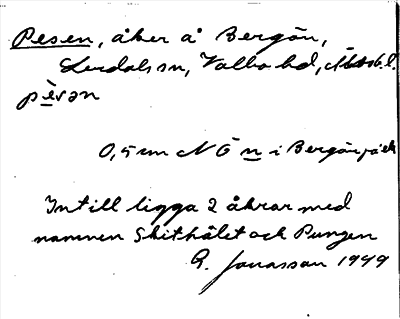 Pesen, åker å Bergön,
Lerdals sn, Valbo hd, Älvsb. l.
pèsən
0,5 cm N Ö n i Bergön på ek
Intill ligga 2 åkrar med
namnen Skithålet och Pungen
G. Jonasson 1949